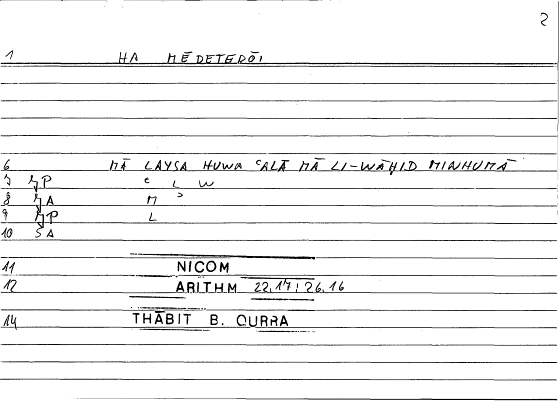 2
1 HA MĒDETERŌI
6 MĀ LAYSA HUWA ʿALĀ MĀ LI-WĀḤID MINHUMĀ
7 P ʿ L W
8 A M ʾ
9 P L
10 SA
11 NICOM
12 ARITHM 22,17; 26,16
14 THĀBIT B. QURRA